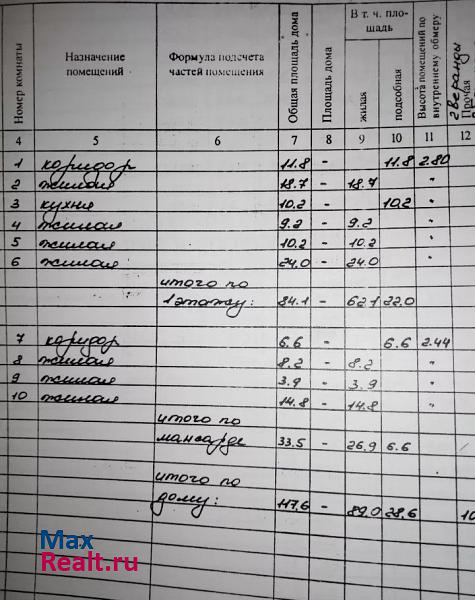 Номер комнаты
Назначение помещений
Формула подсчета частей помещения
Общая площадь дома
Площадь дома
В т. ч. площадь
жилая
подсобная
Высота помещений по внутреннему обмеру
веранды
Прочая
4 5 6 7 8 9 10 11 12
1 коридор 11.8 - 11.8 2.80
2 жилая 18.7 - 18.7 "
3 кухня 10.2 - 10.2 "
4 жилая 9.2 - 9.2 "
5 жилая 10.2 - 10.2 "
6 жилая 24.0 - 24.0 "
итого по
1 этажу: 84.1 - 62.1 22.0
7 коридор 6.6 - 6.6 2.44
8 жилая 8.2 - 8.2 "
9 жилая 3.9 - 3.9 "
10 жилая 14.8 - 14.8 "
итого по
мансарде 33.5 - 26.9 6.6
итого по
дому: 117.6 - 89.0 28.6 10
Max
Realt.ru